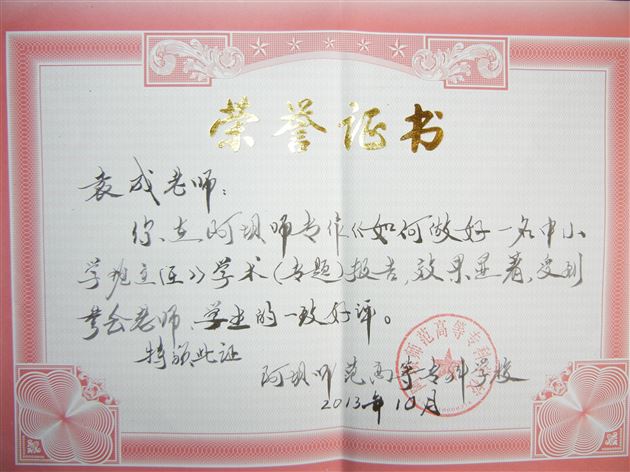 荣誉证书
袁成老师：
你在阿坝师专作《如何做好一名中小
学班主任》学术(专题)报告，效果显著，受到
与会老师、学生的一致好评。
特颁此证
阿坝师范高等专科学校
2013年10月
师范高等专科学校